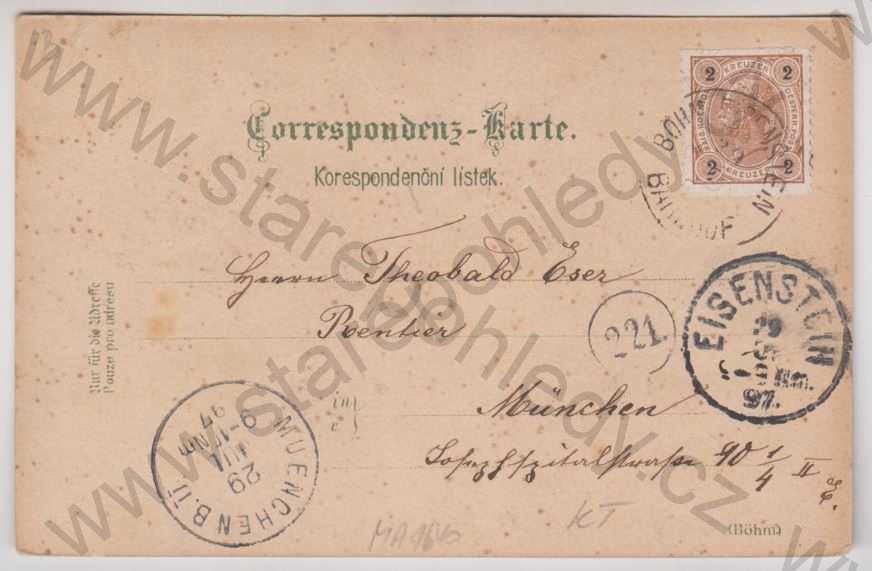 2 KREUZER 2
2 KREUZER 2
BÖHM. EISENSTEIN
BAHNHOF
Correspondenz-Karte.
Korespondenční lístek.
Nur für die Adresse
Pouze pro adresu
Herrn Theobald Eser
Rentier
221.
EISENSTEIN
29
97
München
Josephspitalstraße 90 1/4 II
MUENCHEN B.II.
29
JUL
97
KT
(Böhm)
www.starepohledy.cz